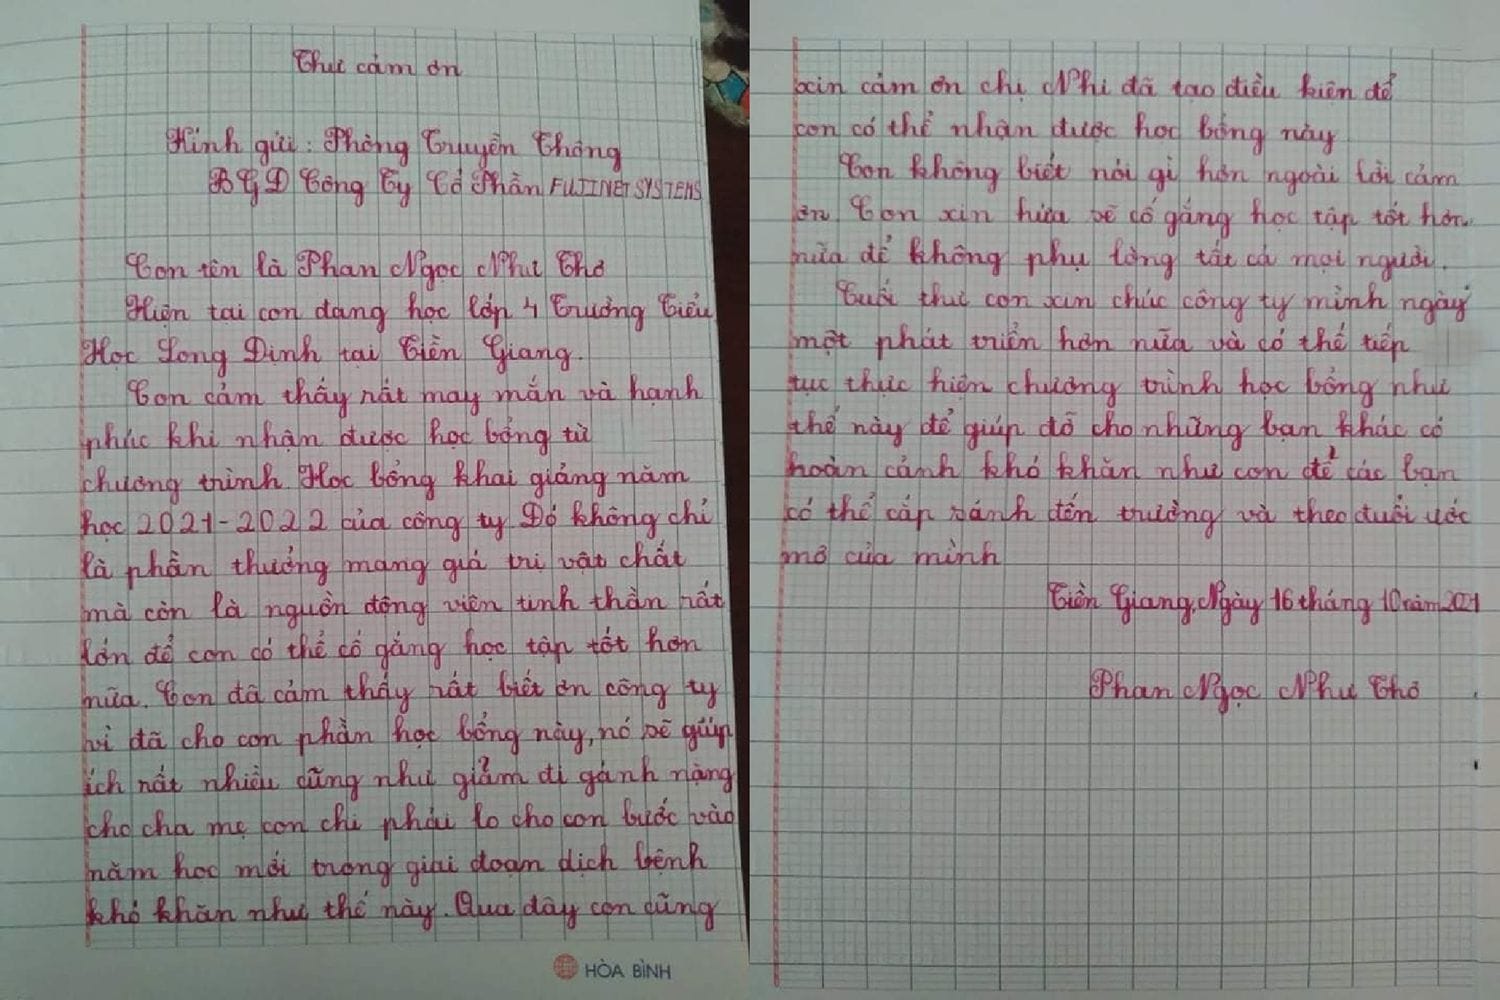 Thư cảm ơn
Kính gửi: Phòng Truyền Thông
BGD Công Ty Cổ Phần FUJINET SYSTEMS
Con tên là Phan Ngọc Như Thơ
Hiện tại con đang học lớp 4 Trường Tiểu
Học Long Định tại Tiền Giang.
Con cảm thấy rất may mắn và hạnh
phúc khi nhận được học bổng từ
chương trình Học bổng khai giảng năm
học 2021-2022 của công ty Đó không chỉ
là phần thưởng mang giá trị vật chất
mà còn là nguồn động viên tinh thần rất
lớn để con có thể cố gắng học tập tốt hơn
nữa. Con đã cảm thấy rất biết ơn công ty
vì đã cho con phần học bổng này, nó sẽ giúp
ích rất nhiều cũng như giảm đi gánh nặng
cho cha mẹ con chi phải lo cho con bước vào
năm học mới trong giai đoạn dịch bệnh
khó khăn như thế này. Qua đây con cũng
HÒA BÌNH
xin cảm ơn chị Nhi đã tạo điều kiện để
con có thể nhận được học bổng này
Con không biết nói gì hơn ngoài lời cảm
ơn Con xin hứa sẽ cố gắng học tập tốt hơn
nữa để không phụ lòng tất cả mọi người.
Cuối thư con xin chúc công ty mình ngày
một phát triển hơn nữa và có thể tiếp
tục thực hiện chương trình học bổng như
thế này để giúp đỡ cho những bạn khác có
hoàn cảnh khó khăn như con để các bạn
có thể cắp sánh đến trường và theo đuổi ước
mơ của mình
Tiền Giang, Ngày 16 tháng 10 năm 2021
Phan Ngọc Như Thơ